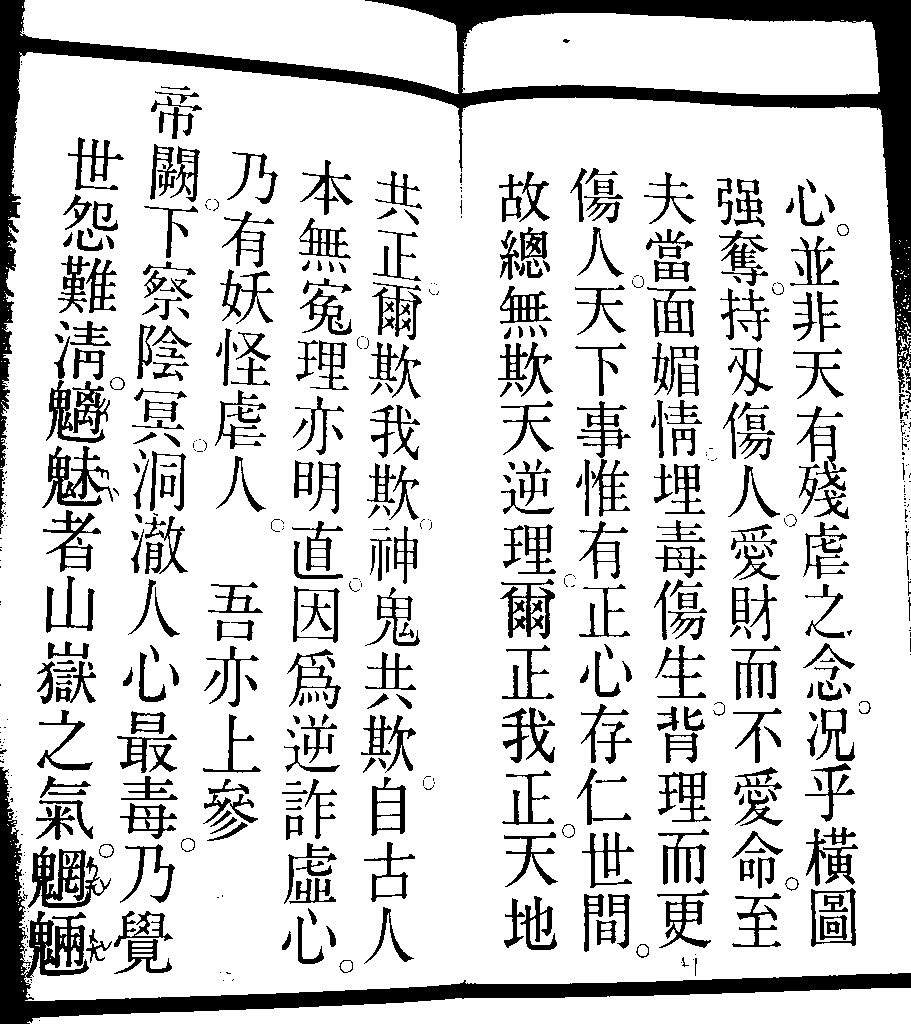 心。並非天有殘虐之念。况乎橫圖
强奪。持刄傷人。愛財而不愛命。至
夫當面媚情。埋毒傷生。背理而更
傷人。天下事惟有正心存仁世間。
故總無欺天逆理。爾正我正。天地
共正。爾欺我欺。神鬼共欺。自古人
本無寃。理亦明直。因爲逆詐虛心。
乃有妖怪虐人。吾亦上參
帝闕。下察陰冥。洞澈人心最毒。乃覺
世怨難淸。魑魅者山嶽之氣。魍魎